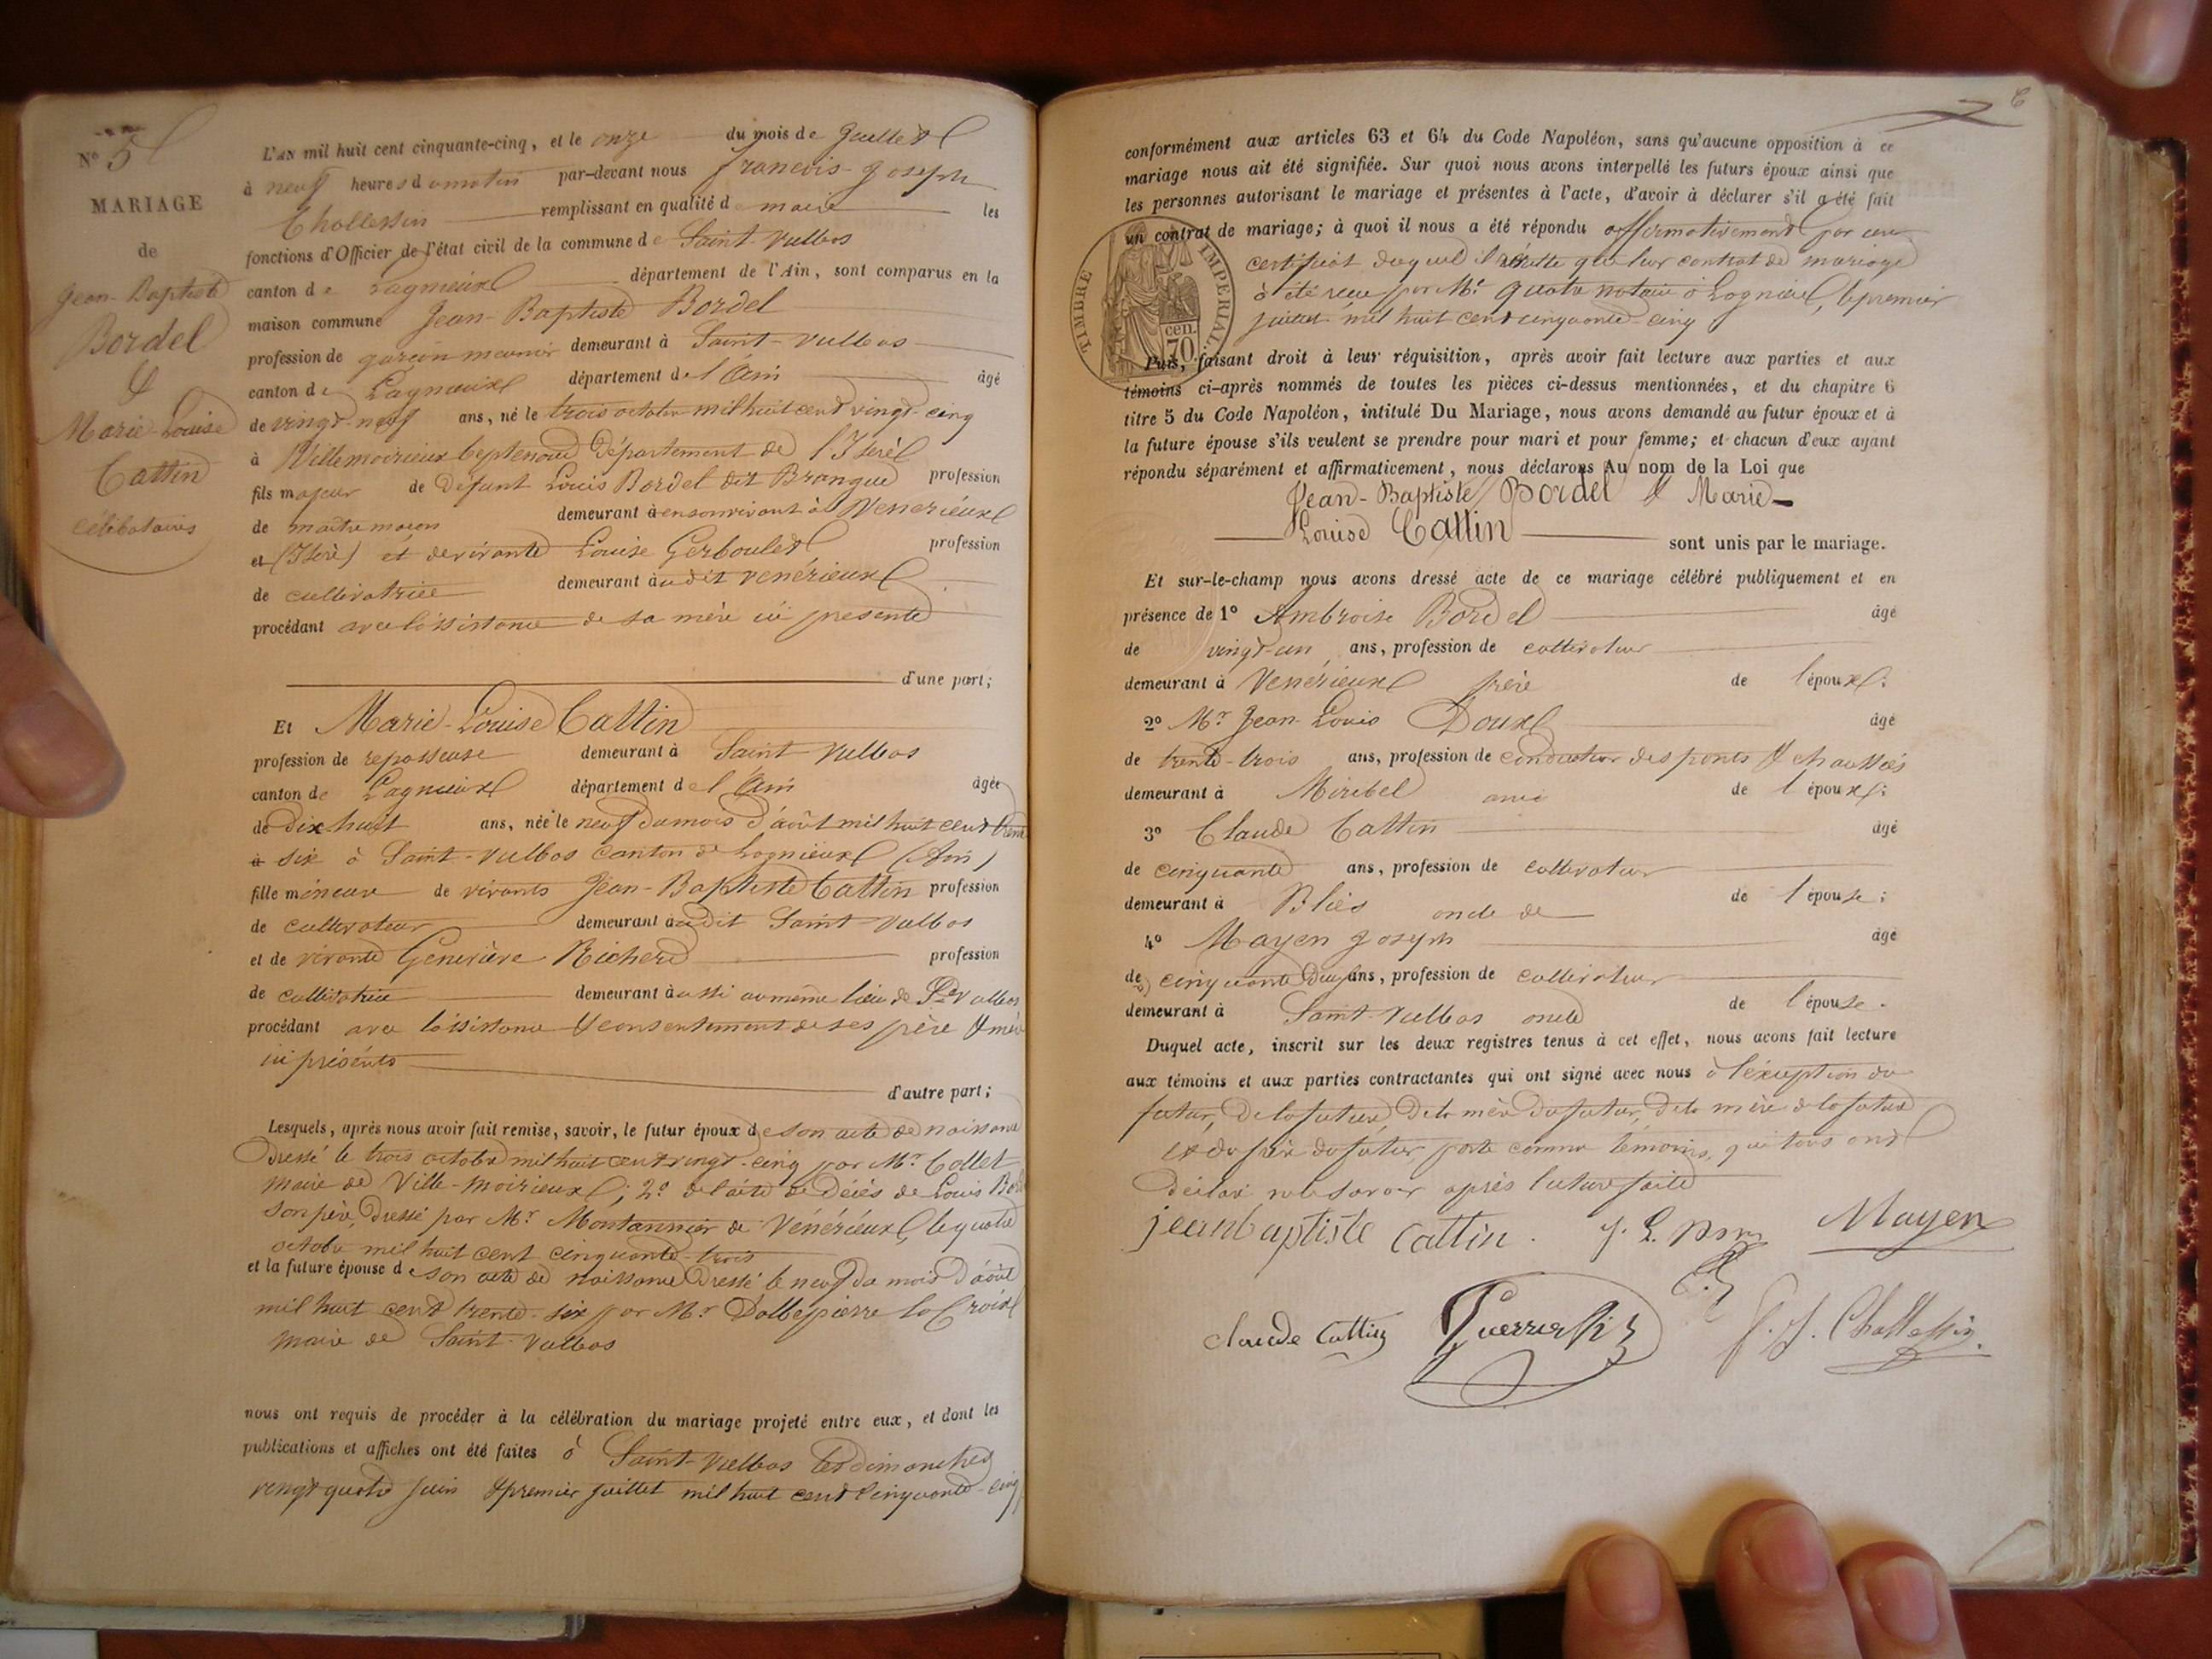 N° 5
MARIAGE
de
Jean-Baptiste
Bordel
&
Marie-Louise
Cattin
célibataires
L'AN mil huit cent cinquante-cinq, et le onze du mois de Juillet
à neuf heures du matin par-devant nous françois-Joseph
Chollessin remplissant en qualité de maire les
fonctions d'Officier de l'état civil de la commune de Saint-Vulbas
canton de Lagnieux département de l'Ain, sont comparus en la
maison commune Jean-Baptiste Bordel
profession de garçon meunier demeurant à Saint-Vulbas
canton de Lagnieux département de l'Ain âgé
de vingt-neuf ans, né le trois octobre mil huit cent vingt-cinq
à Villemoirieux département de l'Isère
fils majeur de défunt Louis Bordel dit Brangue profession
de maître maçon demeurant à en son vivant à Venérieux
et (Isère) et de vivante Louise Gerboulet profession
de cultivatrice demeurant à udit Venérieux
procédant avec l'assistance de sa mère ici présente
d'une part;
Et Marie-Louise Cattin
profession de repasseuse demeurant à Saint Vulbas
canton de Lagnieux département de l'Ain âgée
de Dix huit ans, née le neuf du mois d'août mil huit cent trente
à six à Saint-Vulbas canton de Lagnieux (Ain)
fille mineure de vivants Jean-Baptiste Cattin profession
de cultivateur demeurant à udit Saint-Vulbas
et de vivante Geneviève Richerd profession
de cultivatrice demeurant à ussi au même lieu de St Vulbas
procédant avec l'assistance & consentement de ses père & mère
ici présents
d'autre part;
Lesquels, après nous avoir fait remise, savoir, le futur époux de son acte de naissance
Dressé le trois octobre mil huit cent vingt-cinq par Mr Collet
maire de Ville-Moirieux; 2° de l'acte de décès de Louis Bordel
son père, Dressé par Mr Montannier de Vénérieux, le quatre
octobre mil huit cent cinquante-trois
et la future épouse de son acte de naissance Dressé le neuf du mois d'août
mil huit cent trente-six par Mr Dalbepierre la Croix
maire de Saint-Vulbas
nous ont requis de procéder à la célébration du mariage projeté entre eux, et dont les
publications et affiches ont été faites à Saint-Vulbas les dimanches
vingt quatre juin & premier juillet mil huit cent cinquante-cinq
6
conformément aux articles 63 et 64 du Code Napoléon, sans qu'aucune opposition à ce
mariage nous ait été signifiée. Sur quoi nous avons interpellé les futurs époux ainsi que
les personnes autorisant le mariage et présentes à l'acte, d'avoir à déclarer s'il a été fait
un contrat de mariage; à quoi il nous a été répondu affirmativement par un
certificat duquel il résulte que leur contrat de mariage
à été reçu par Me Quatre notaire à Lagnieu, le premier
juillet mil huit cent cinquante-cinq
TIMBRE IMPERIAL
cen.
70
Puis, faisant droit à leur réquisition, après avoir fait lecture aux parties et aux
témoins ci-après nommés de toutes les pièces ci-dessus mentionnées, et du chapitre 6
titre 5 du Code Napoléon, intitulé Du Mariage, nous avons demandé au futur époux et à
la future épouse s'ils veulent se prendre pour mari et pour femme; et chacun d'eux ayant
répondu séparément et affirmativement, nous déclarons Au nom de la Loi que
Jean-Baptiste Bordel & Marie-
Louise Cattin sont unis par le mariage.
Et sur-le-champ nous avons dressé acte de ce mariage célébré publiquement et en
présence de 1° Ambroise Bordel âgé
de vingt-un ans, profession de cultivateur
demeurant à Venérieux frère de l'époux;
2° Mr Jean-Louis Doux âgé
de trente-trois ans, profession de conducteur des ponts & chaussées
demeurant à Miribel ami de l'époux;
3° Claude Cattin âgé
de cinquante ans, profession de cultivateur
demeurant à Blies oncle de de l'épouse;
4° Mayen Joseph âgé
de cinquante Deux ans, profession de cultivateur
demeurant à Saint-Vulbas oncle de l'épouse.
Duquel acte, inscrit sur les deux registres tenus à cet effet, nous avons fait lecture
aux témoins et aux parties contractantes qui ont signé avec nous à l'exception du
futur, De la future, De la mère du futur, de la mère de la future
et du frère du futur, porté comme témoins, qui tous ont
déclaré ne le savoir après lecture faite
jeanbaptiste Cattin. J. L. Doux Mayen
claude Cattin F. J. Chollessin.